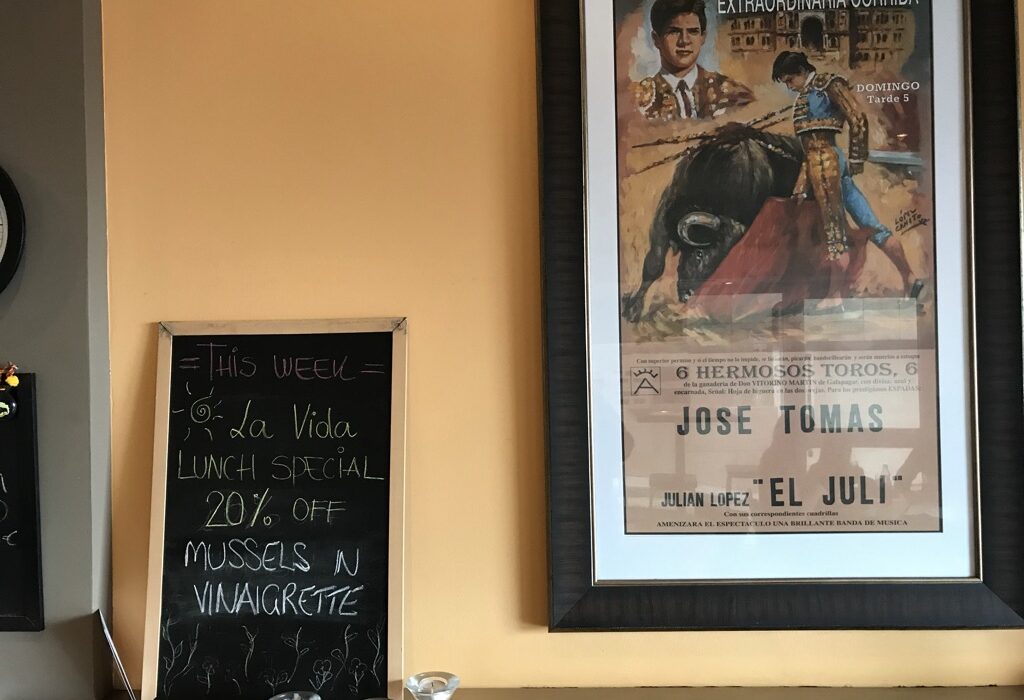 = THIS WEEK =
La Vida
LUNCH SPECIAL
20% OFF
MUSSELS IN
VINAIGRETTE
EXTRAORDINARIA CORRIDA
DOMINGO
Tarde 5
LOPEZ
CANITO
Con superior permiso y si el tiempo no lo impide, se lidiarán, picarán, banderillearán y serán muertos a estoque
6 HERMOSOS TOROS, 6
de la ganadería de Don VITORINO MARTIN de Galapagar, con divisa: azul y
encarnada, Señal: Hoja de higuera en las dos orejas. Para los prestigiosos ESPADAS:
JOSE TOMAS
JULIAN LOPEZ "EL JULI"
Con sus correspondientes cuadrillas
AMENIZARA EL ESPECTACULO UNA BRILLANTE BANDA DE MUSICA